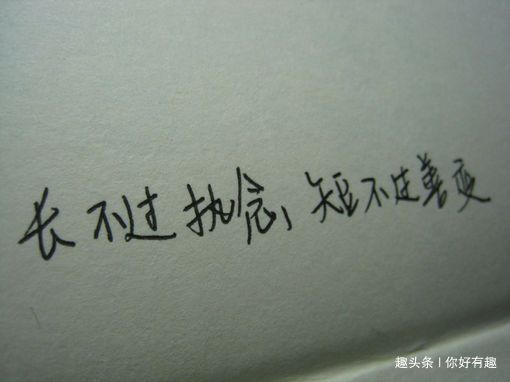 长不过执念，短不过善变
趣头条 | 你好有趣